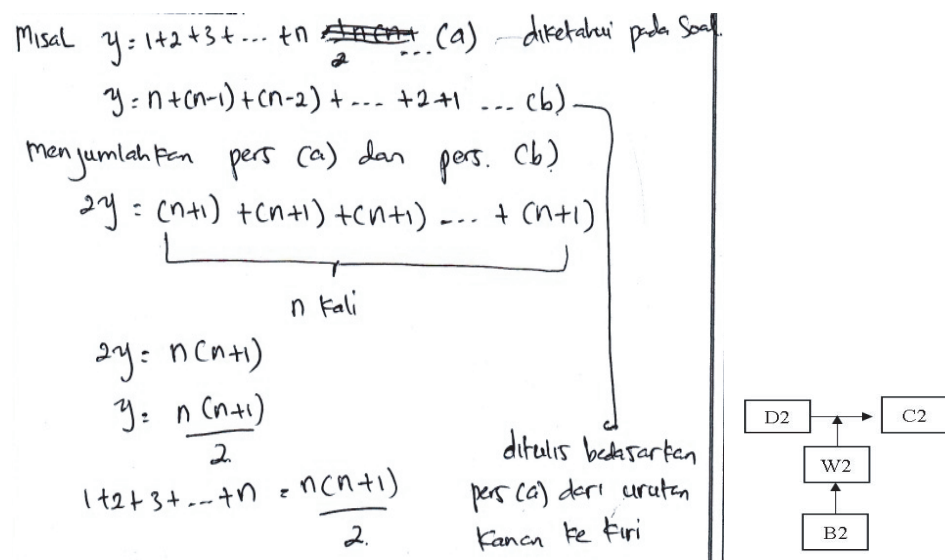 Misal y = 1+2+3+ ... +n ... (a) diketahui pada soal.
y = n+(n-1)+(n-2)+ ... +2+1 ... (b)
menjumlahkan pers (a) dan pers. (b)
2y = (n+1) +(n+1) +(n+1) ... + (n+1)
n kali
2y = n(n+1)
y = n(n+1)/2
1+2+3+...+n = n(n+1)/2.
ditulis bedasarkan
pers (a) dari urutan
kanan ke kiri
D2
C2
W2
B2